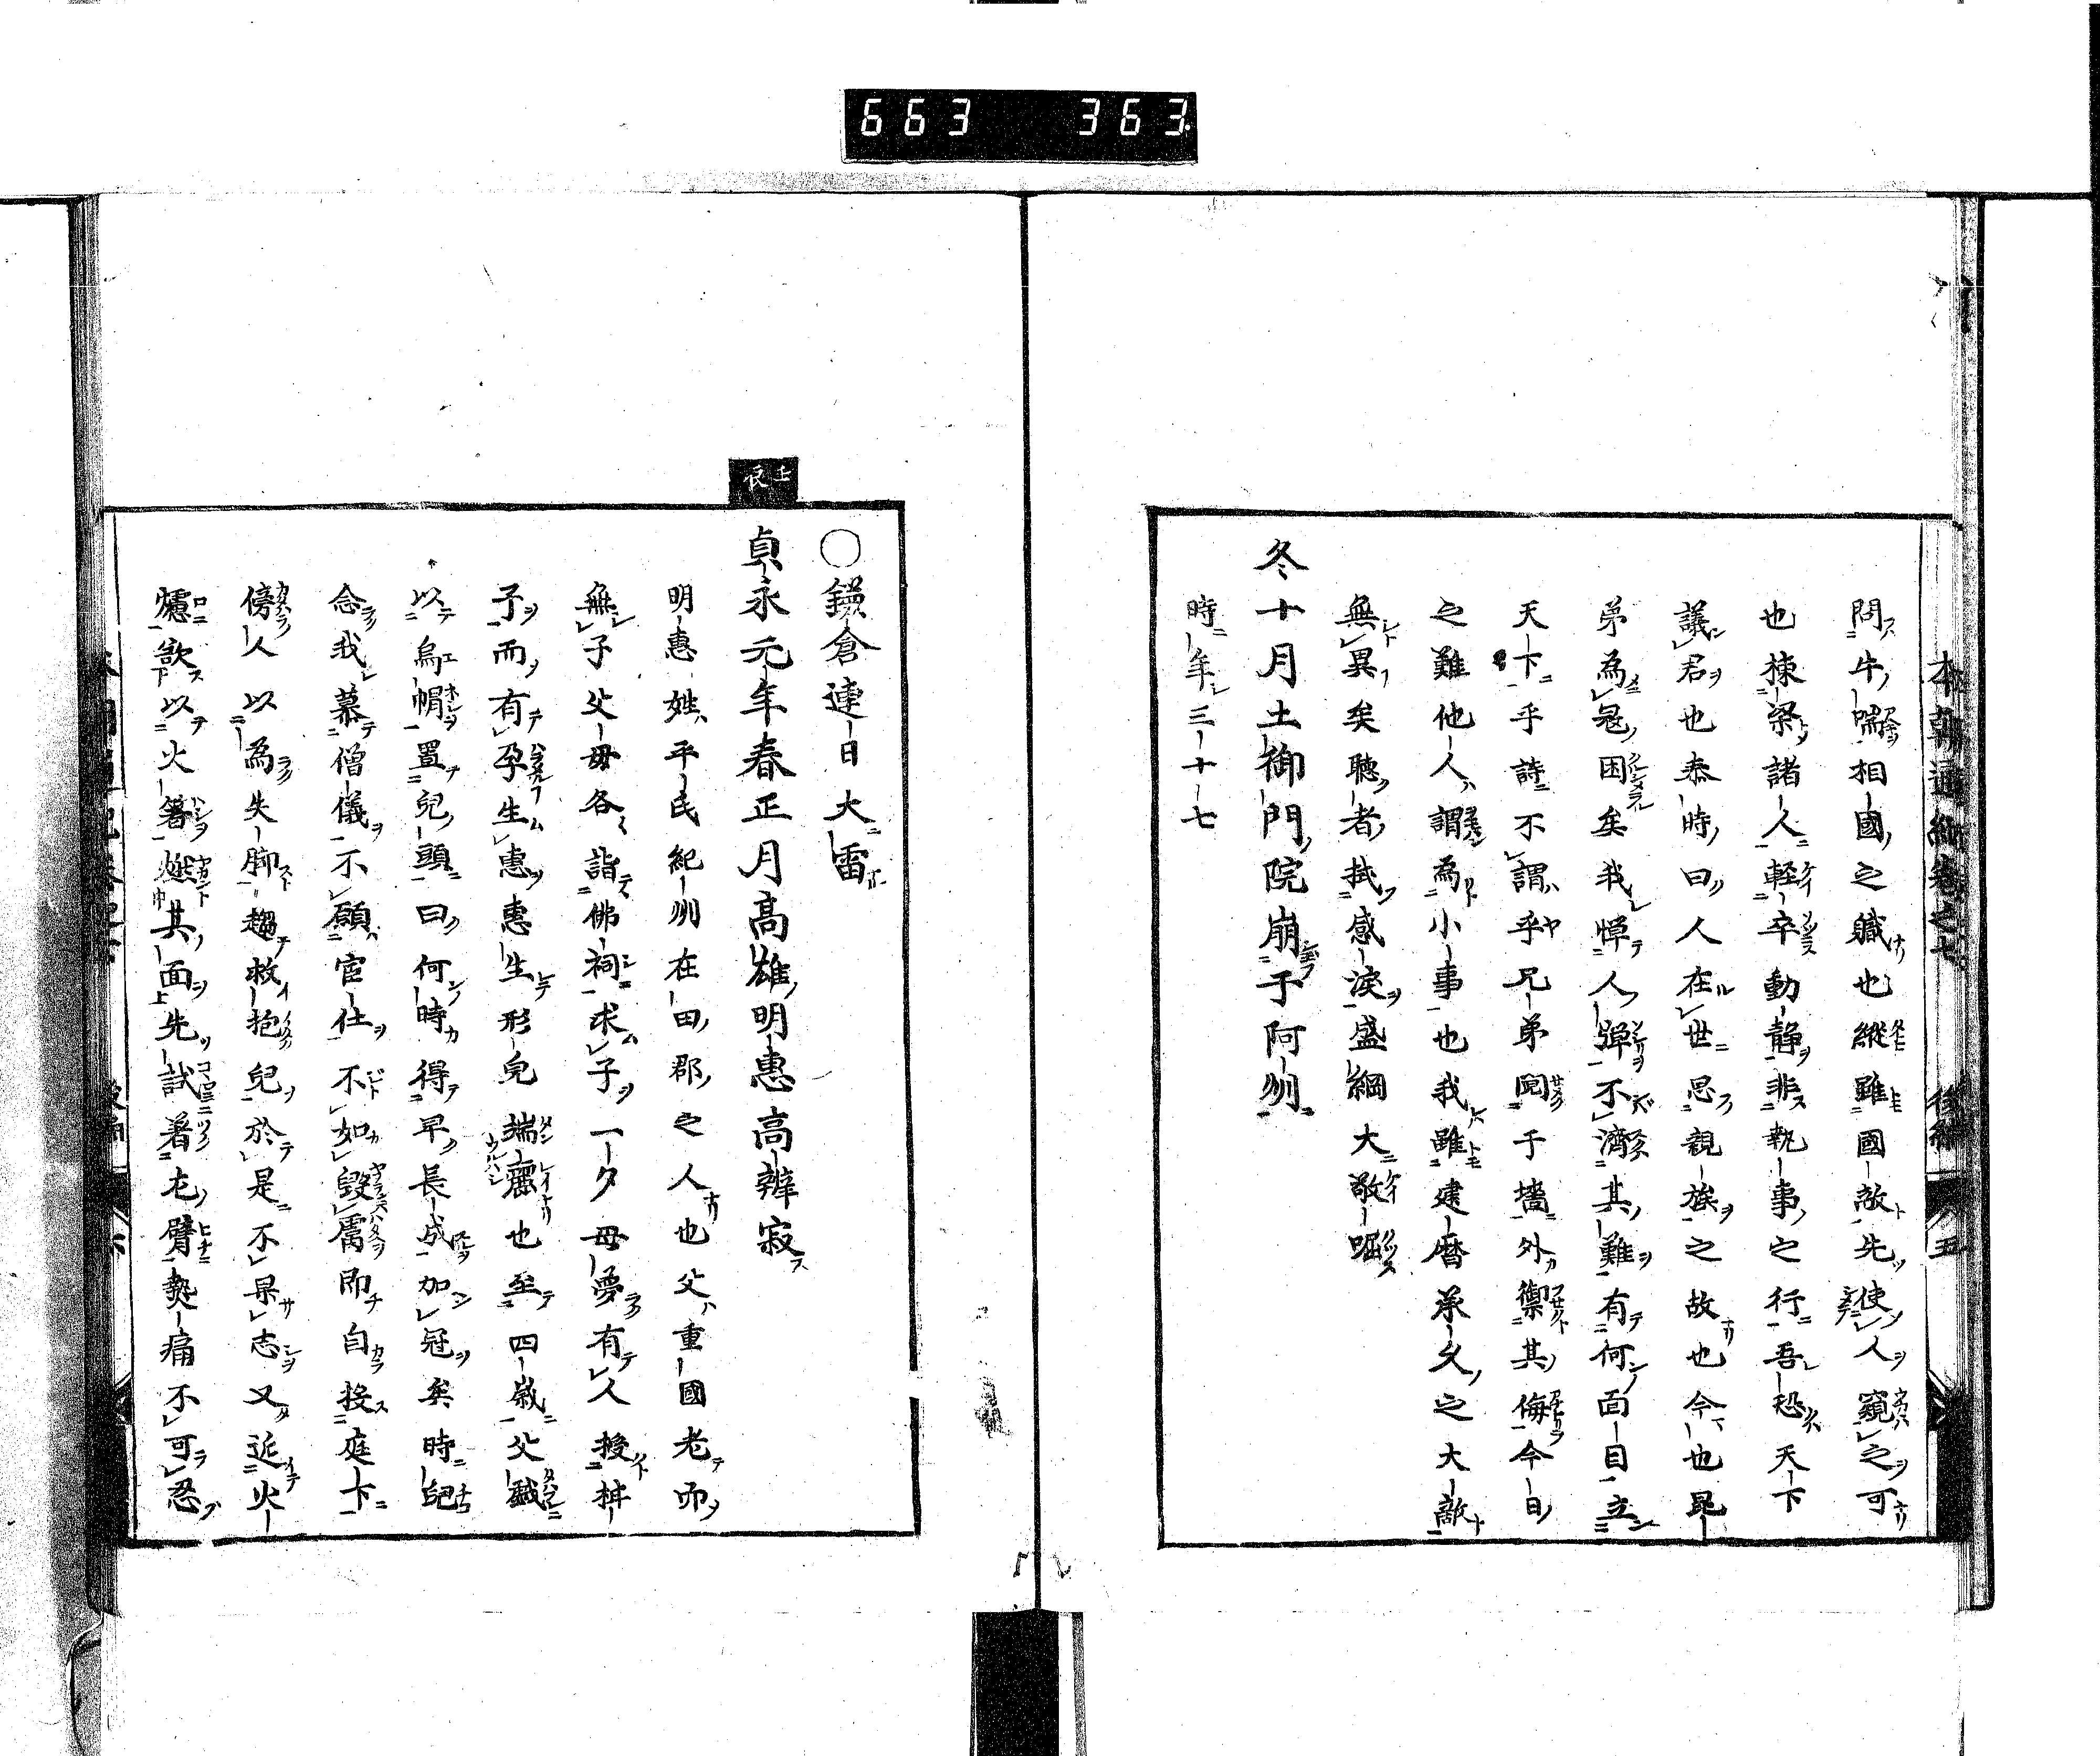 663 363
本朝通紀卷之七 後編 五
問牛喘相國之職也縱雖國敵先使人窺之可
也棟梁諸人輕卒動靜非執事之行吾恐天下
議君也泰時曰人在世思親族之故也今也昆
弟為冦困矣我憚人彈不濟其難有何面目立
天下乎詩不謂乎兄弟鬩于墻外禦其侮今日
之難他人謂為小事也我雖建曆承久之大敵
無異矣聽者拭感淚盛綱大敬嘔
冬十月土御門院崩于阿州
時年三十七
○鎌倉連日大雷
壬辰
貞永元年春正月高雄明惠高辨寂
明惠姓平氏紀州在田郡之人也父重國老而
無子父母各詣佛祠求子一夕母夢有人授柑
子而有孕生惠惠生形皃端麗也至四歳父戲
以烏帽置兒頭曰何時得早長成加冠矣時兒
念我慕僧儀不願官仕不如毀膚即自投庭下
傍人以為失脚趨救抱兒於是不果志又近火
爐欲以火箸其面先試着左臂熱痛不可忍